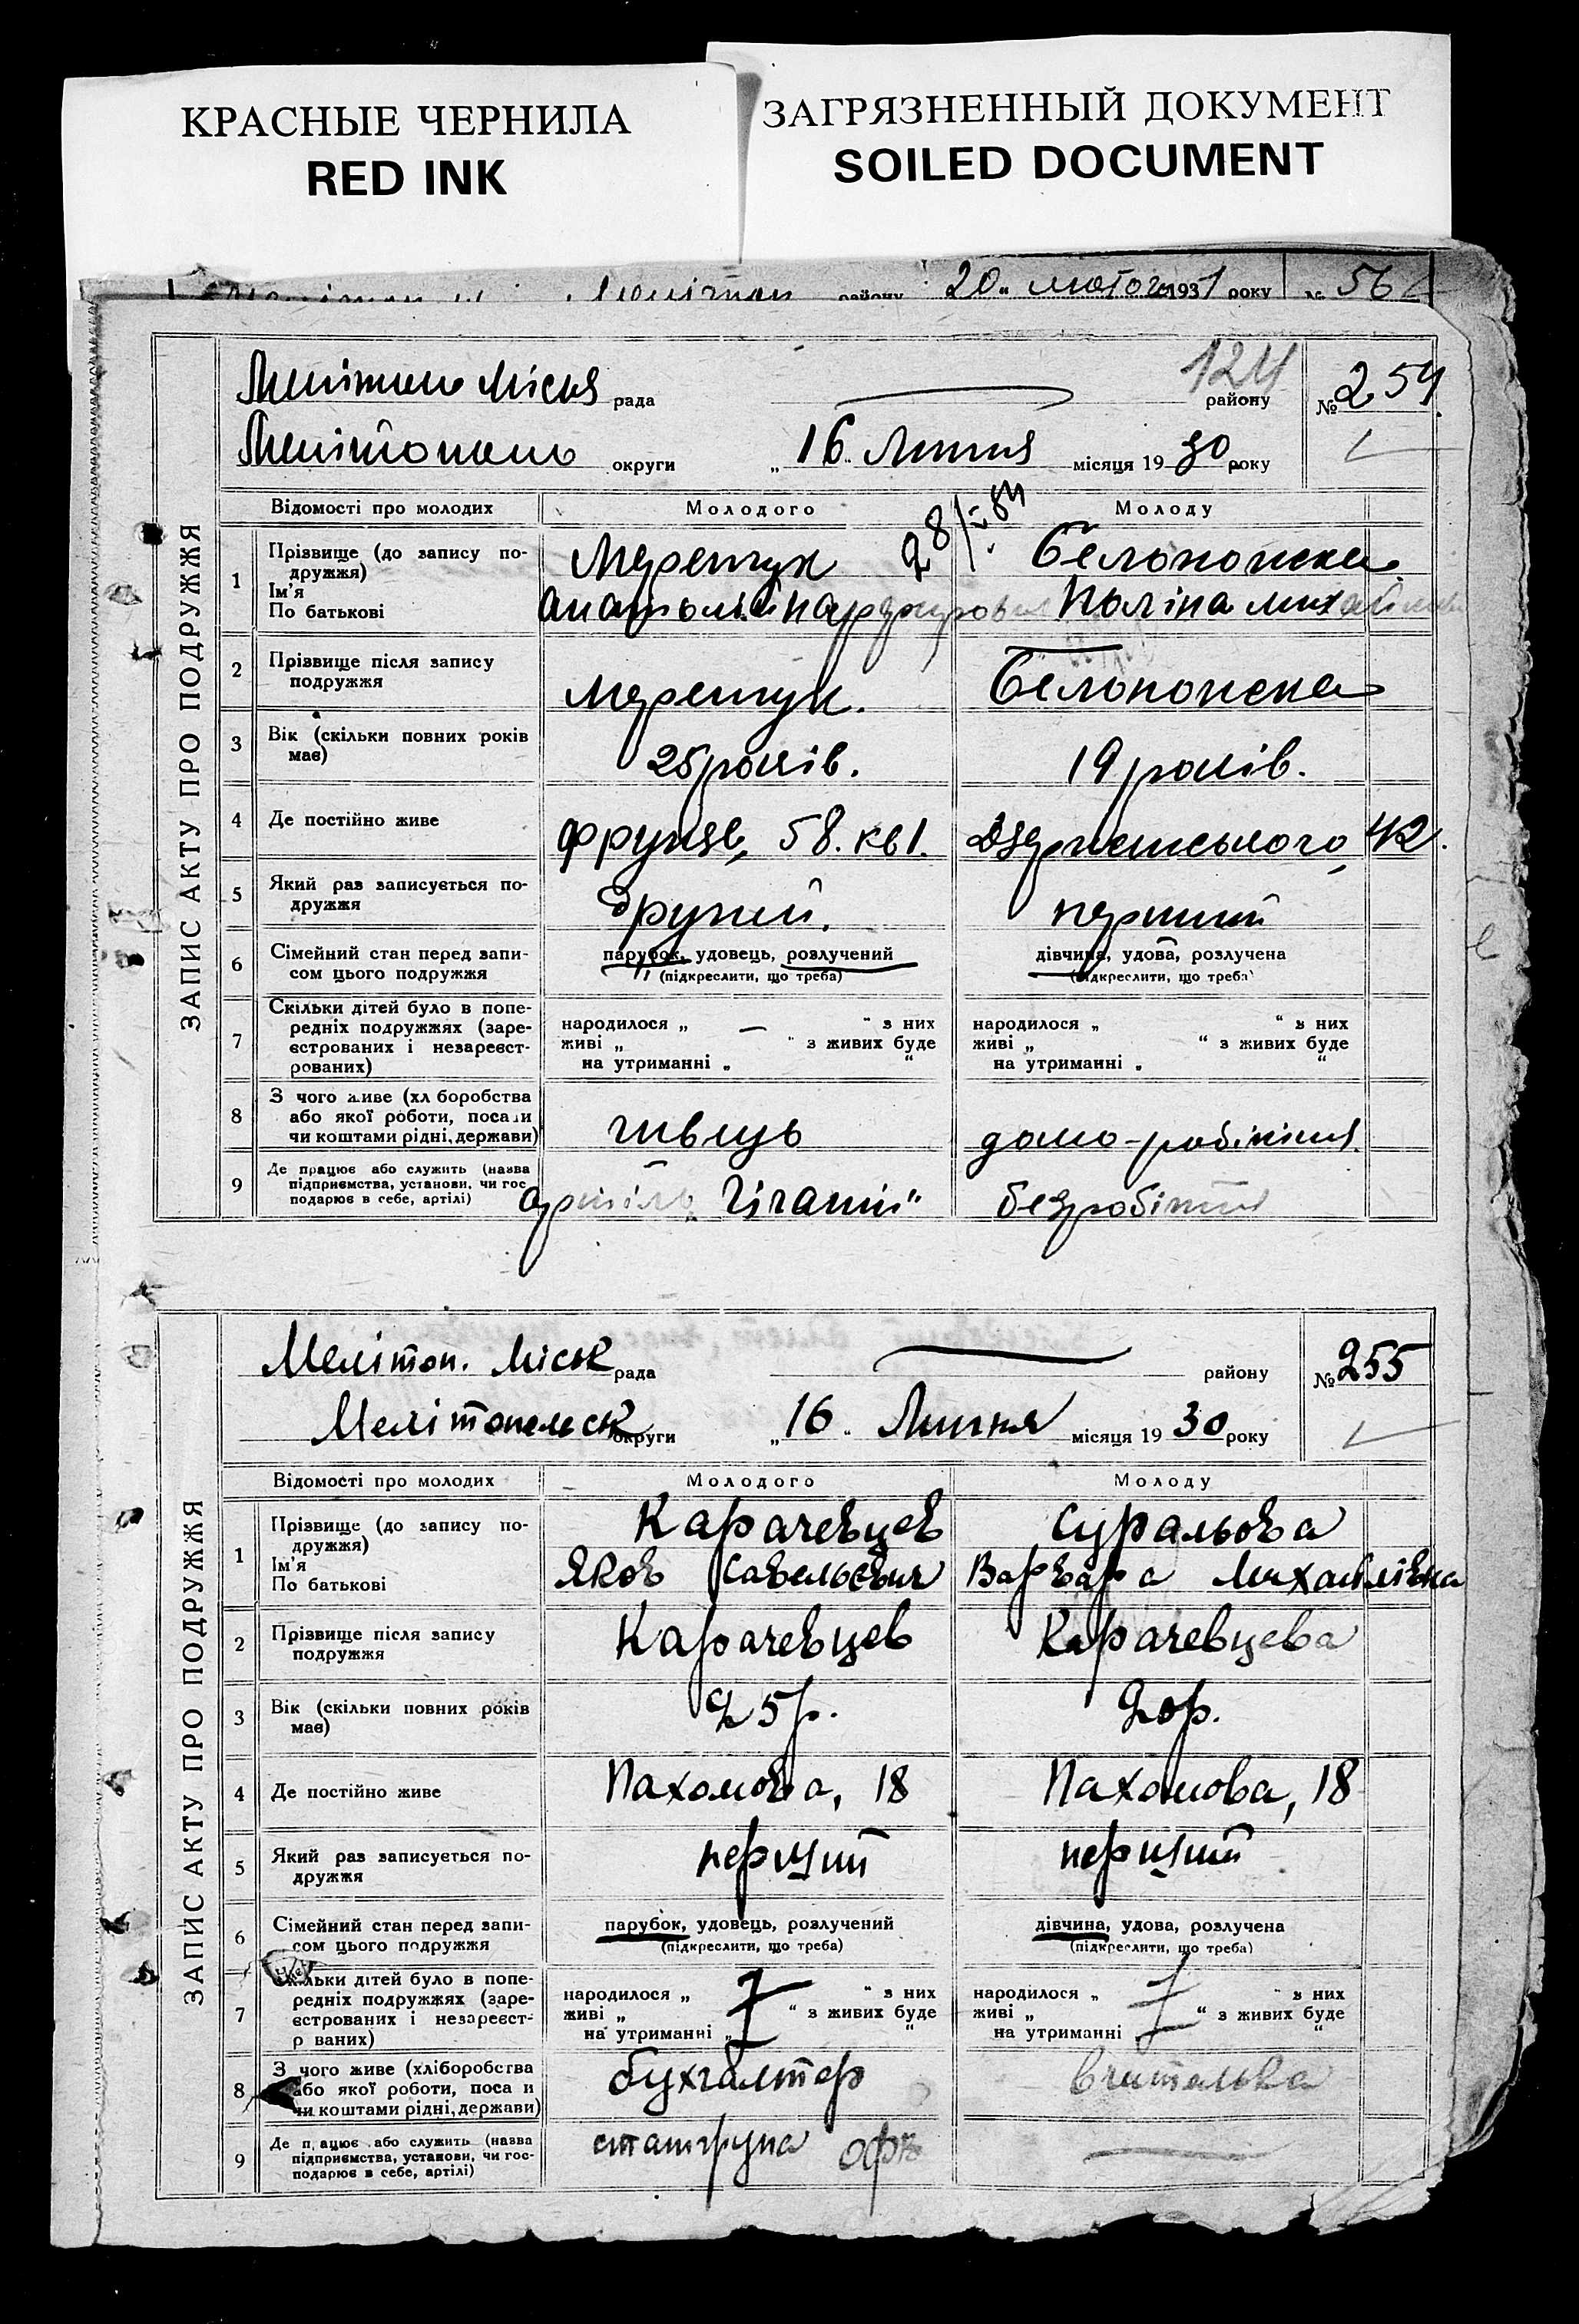 КРАСНЫЕ ЧЕРНИЛА
RED INK
ЗАГРЯЗНЕННЫЙ ДОКУМЕНТ
SOILED DOCUMENT
району 20 „ лютого 1931 року № 56
ЗАПИС АКТУ ПРО ПОДРУЖЖЯ
рада району 124 № 254
округи „ 16 „ Липня місяця 19 30 року
Відомості про молодих Молодого Молоду
28/
1 Прізвище (до запису по-
дружжя)
Ім'я
По батькові
2 Прізвище після запису
подружжя
3 Вік (скільки повних років
має)
25 років. 19 років.
4 Де постійно живе
Фрунзе, 58. кв 1. Дзержинського, 42.
5 Який раз записується по-
дружжя
другий. перший
6 Сімейний стан перед запи-
сом цього подружжя
парубок, удовець, розлучений дівчина, удова, розлучена
(підкреслити, що треба) (підкреслити, що треба)
7 Скільки дітей було в попе-
редніх подружжях (заре-
єстрованих і незареєст-
рованих)
народилося „ — “ з них народилося „ “ з них
живі „ “ з живих буде живі „ “ з живих буде
на утриманні „ “ на утриманні „ “
8 З чого живе (хл боробства
або якої роботи, посади
чи коштами рідні, держави)
швець домо-робітниця.
9 Де працює або служить (назва
підприємства, установи, чи гос
подарює в себе, артілі)
артіль „Гігант“ безробітня
ЗАПИС АКТУ ПРО ПОДРУЖЖЯ
Мелітоп. Міськ рада району № 255
Мелітопельск округи „ 16 „ Липня місяця 19 30 року
Відомості про молодих Молодого Молоду
1 Прізвище (до запису по-
дружжя)
Ім'я
По батькові
Карачевцев Суральова
Яков Савельевич Варвара Михайлівна
2 Прізвище після запису
подружжя
Карачевцев Карачевцева
3 Вік (скільки повних років
має)
25 р. 20 р.
4 Де постійно живе
Пахомова, 18 Пахомова, 18
5 Який раз записується по-
дружжя
перший перший
6 Сімейний стан перед запи-
сом цього подружжя
парубок, удовець, розлучений дівчина, удова, розлучена
(підкреслити, що треба) (підкреслити, що треба)
7 Скільки дітей було в попе-
редніх подружжях (заре-
єстрованих і незареєст-
р ваних)
народилося „ “ з них народилося „ “ з них
живі „ “ з живих буде живі „ “ з живих буде
на утриманні „ “ на утриманні „ “
8 З чого живе (хліборобства
або якої роботи, поса и
чи коштами рідні, держави)
бухгалтер вчителька
9 Де п ацює або служить (назва
підприємства, установи, чи гос-
подарює в себе, артілі)